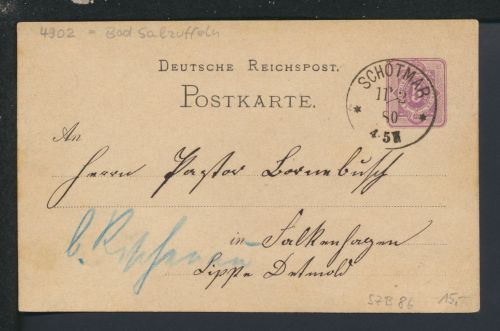 4902 = Bad Salzuflen
DEUTSCHE REICHSPOST.
POSTKARTE.
SCHÖTMAR
11 2
80
4-5N
An
Herrn Pastor Bornebusch
in Falkenhagen
b.
Lippe Detmold
SZB 86 15,-